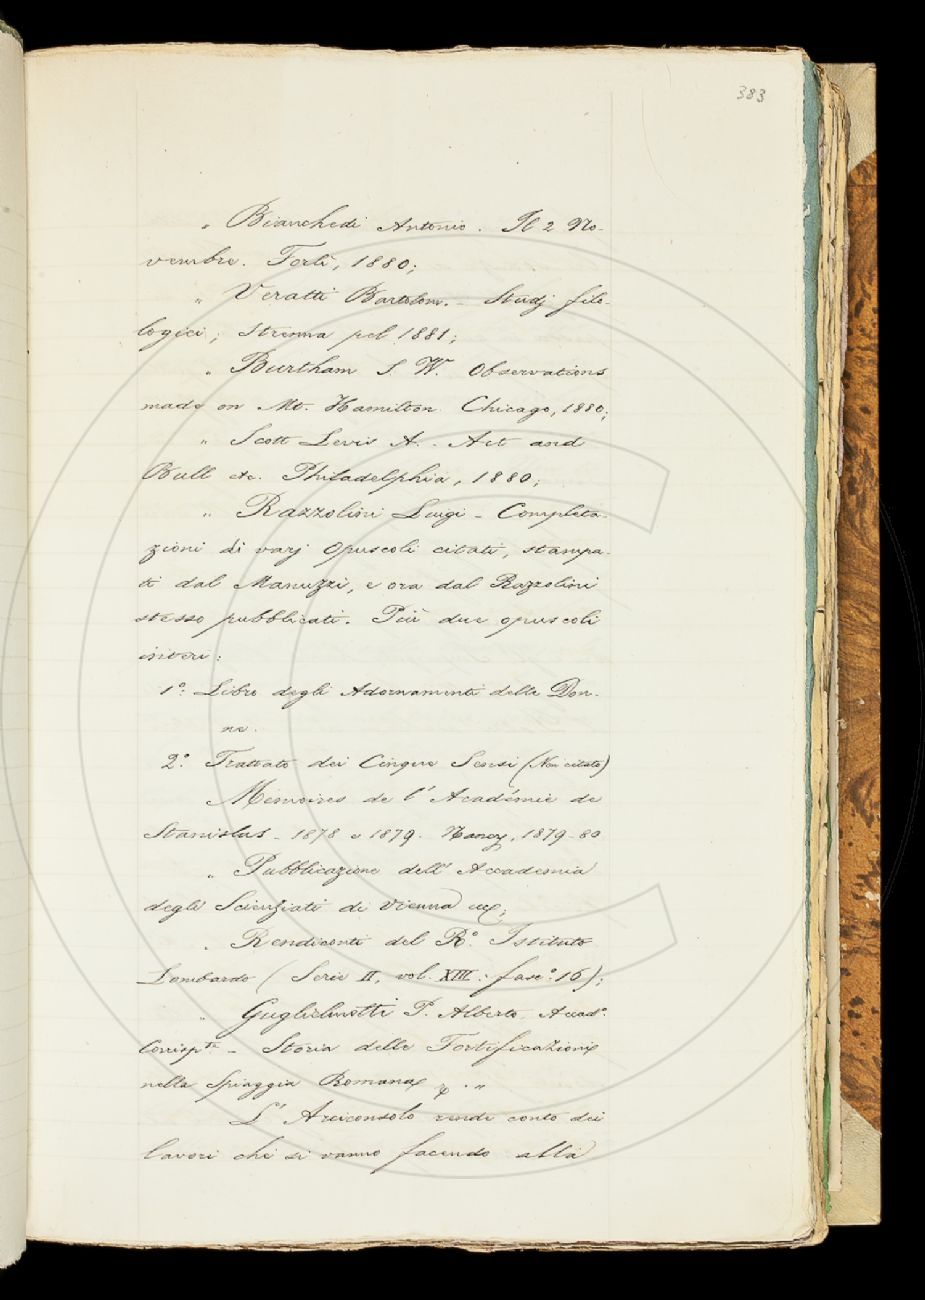 383
„ Bianchedi Antonio. Il 2 No-
vembre. Forlì, 1880;
„ Veratti Bartolom. - Studj filo-
logici; Strenna pel 1881;
„ Burtham S. W. Observations
made on Mt. Hamilton Chicago, 1880;
„ Scott Levis A. - Act and
Bull etc. Philadelphia, 1880;
„ Razzolini Luigi - Completa-
zioni di varj opuscoli citati, stampa-
ti dal Manuzzi, e ora dal Razzolini
stesso pubblicati. Più due opuscoli
interi:
1º: Libro degli Adornamenti delle Don-
ne.
2º Trattato dei Cinque Sensi (Non citato)
Mémoires de l'Académie de
Stanislas - 1878 e 1879. Nancy, 1879-80
„ Pubblicazione dell'Accademia
degli Scienziati di Vienna
„ Rendiconti del Rº. Istituto
Lombardo (Serie II, vol. XIII. fascº. 16);
„ Guglielmotti P. Alberto, Accadº.
Corrispte - Storia delle Fortificazioni
nella Spiaggia Romana
L'Arciconsolo rende conto dei
lavori che si vanno facendo alla